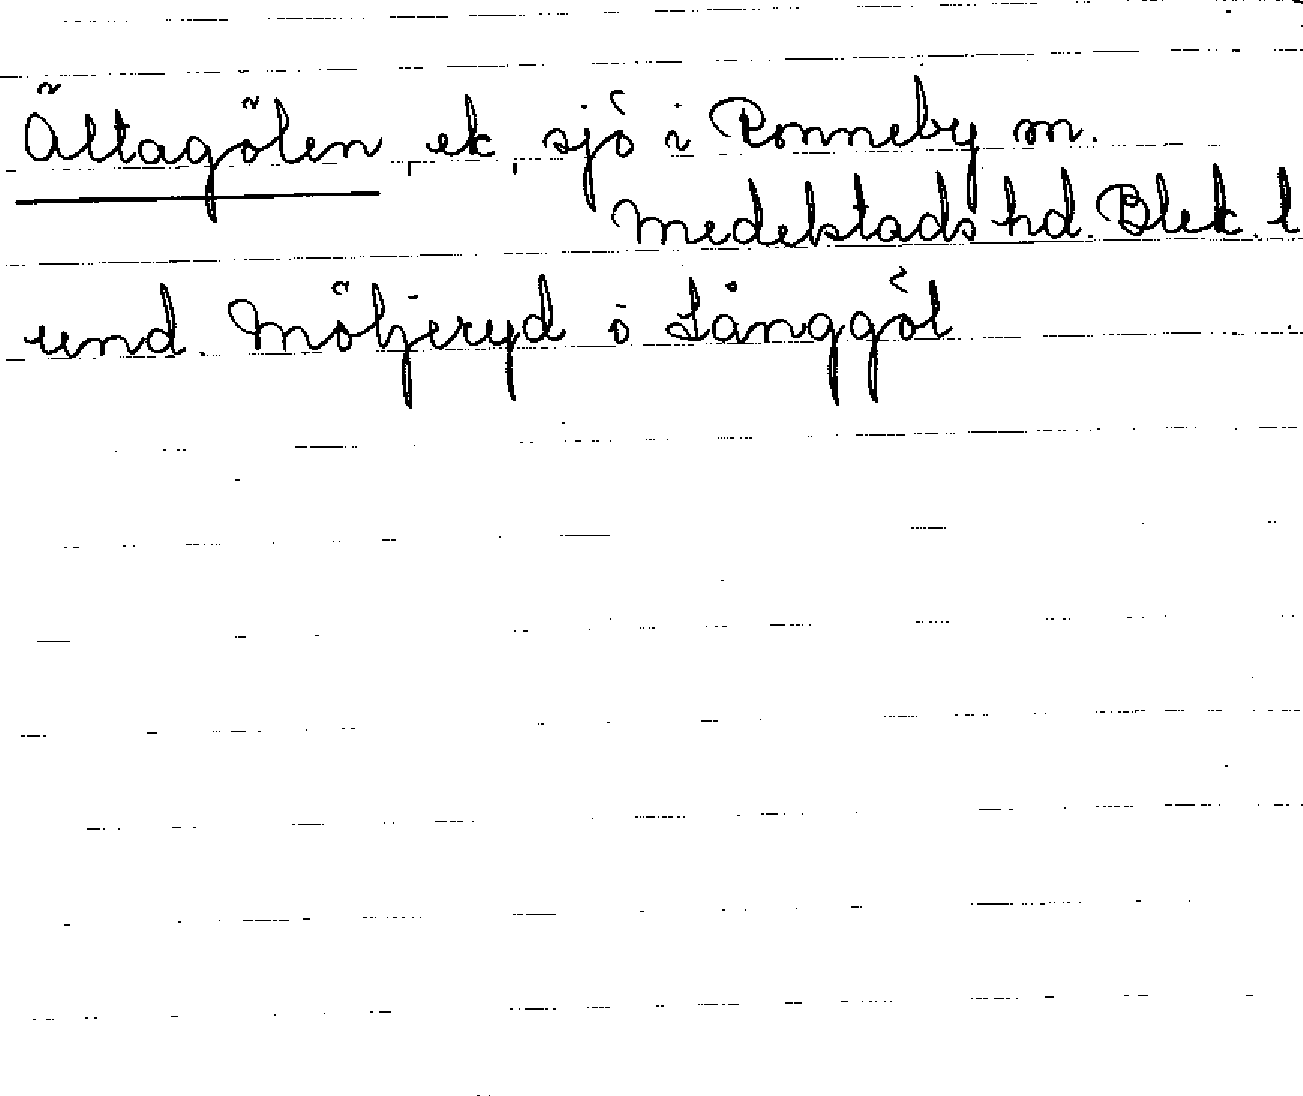 Ältagölen, ek, sjö i Ronneby sn.
Medelstads hd. Blek. l
und. Möljeryd o Långgöl